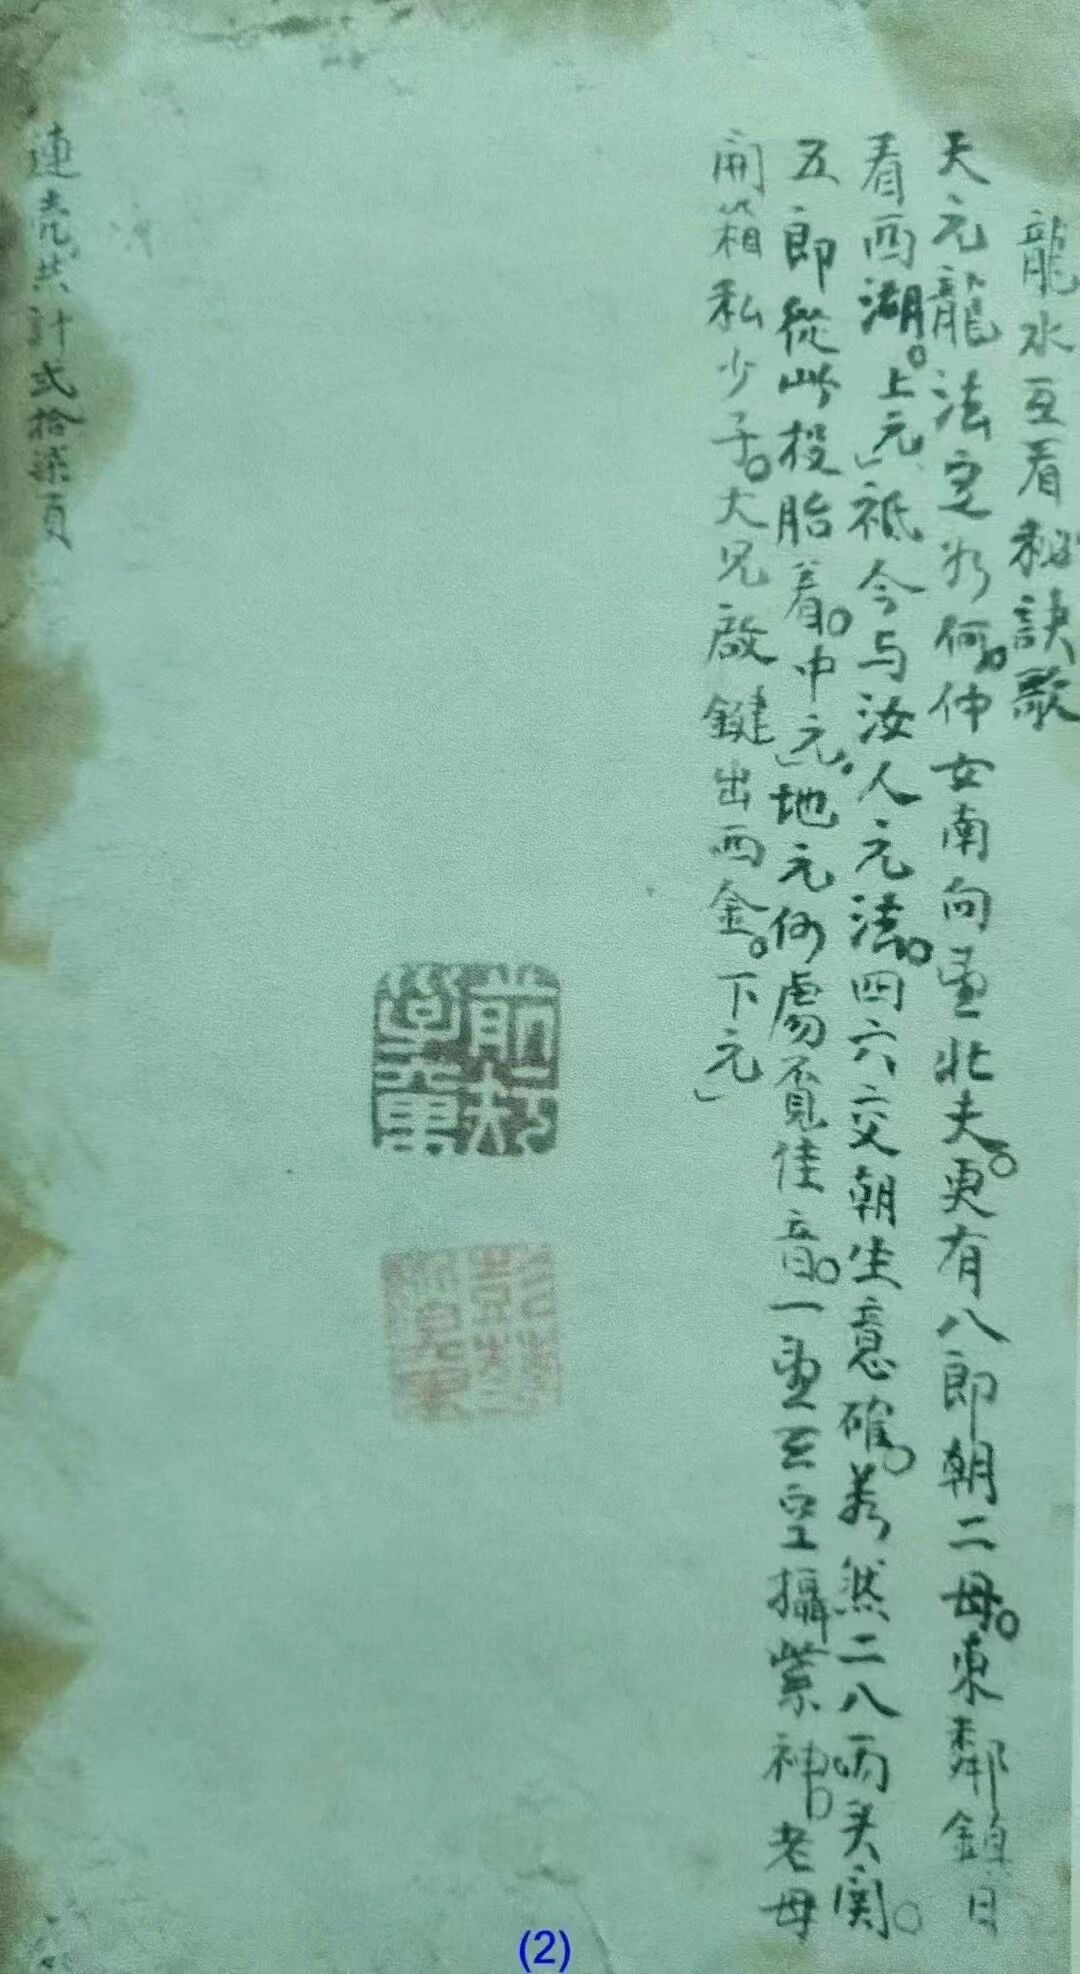 龍水互看秘訣歌
天元龍法定如何。仲女南向重北夫。更有八郎朝二母。東鄰鎮日
看西湖。上元」祗今与汝人元法。四六交朝生意確。若然二八兩头关。
五郎從此投胎着。中元」。地元何處覓佳音。一重互望攝紫神。老母
開箱私少子。大兄啟鍵出西金。下元」
連壳共計弍拾柒頁
(2)